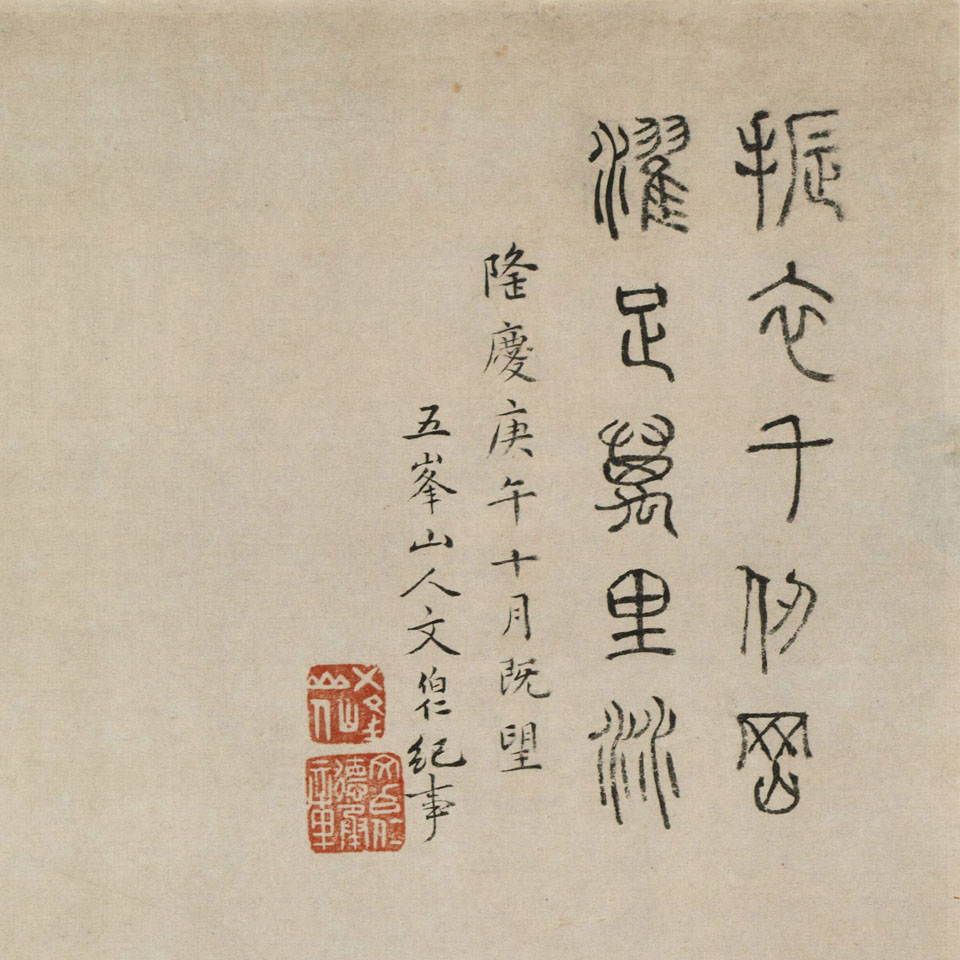 振衣千仞岡
濯足萬里流
隆慶庚午十月既望
五峯山人文伯仁紀事
五峯山人
文伯仁德承印章